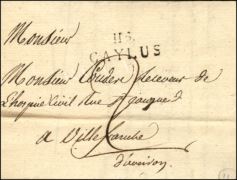 Monsieur
115.
CAYLUS
Monsieur Couderc Receveur de
L'hospice Civil Rue St Jacques
a Villefranche
d'aveiron.